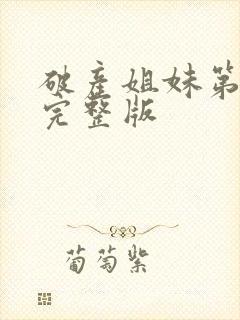 破产姐妹第
完整版
葡萄紫